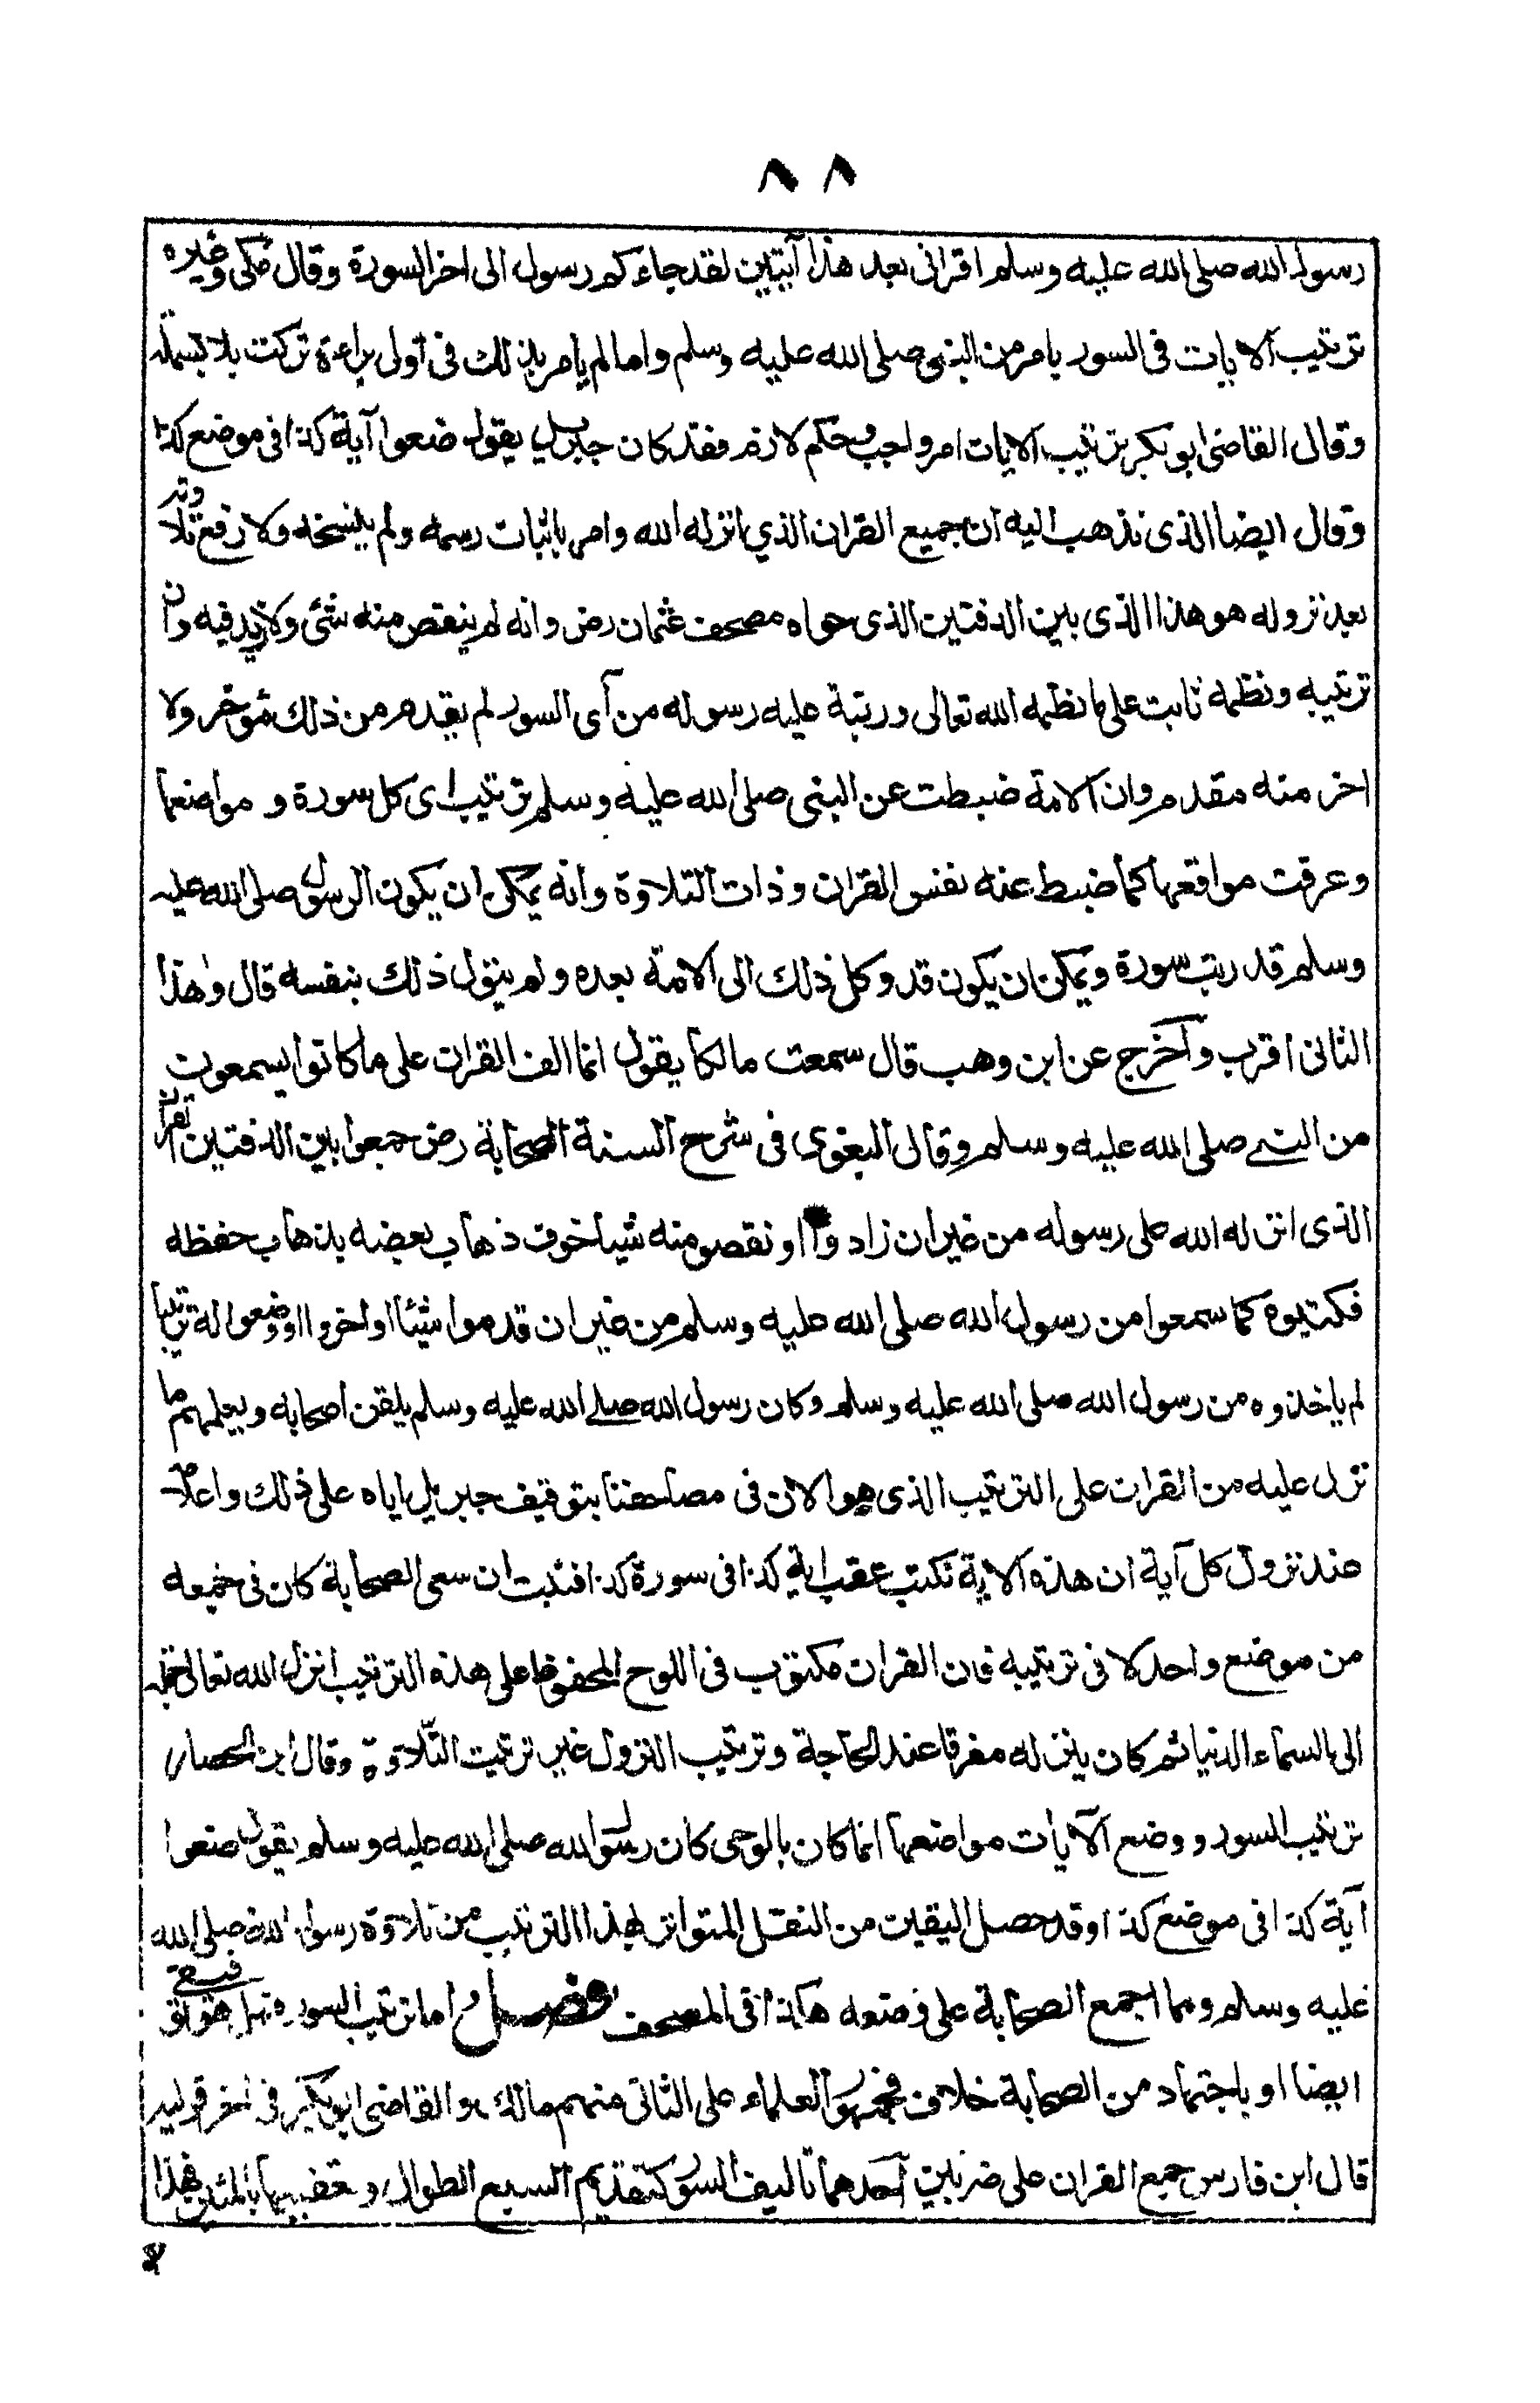 ٨٨
رسول الله صلى الله عليه وسلم اقرانى بعد هذا آيتين لقد جاءكم رسول الى اخر السورة وقال مكى وغيره
ترتيب الايات فى السور بامر من النبى صلى الله عليه وسلم واما لم يامر بذلك فى اولى براءة تركت بلا بسملة
وقال القاضى ابو بكر ترتيب الايات امر واجب وحكم لازم فقد كان جبريل يقول ضعوا آية كذا فى موضع كذا
وقال ايضا الذى نذهب اليه ان جميع القران الذي انزله الله وامر باثبات رسمه ولم ينسخه ولا رفع تلاوته
بعد نزوله هو هذا الذى بين الدفتين الذى حواه مصحف عثمان رض وانه لم ينقص منه شئ ولا زيد فيه وان
ترتيبه ونظمه ثابت على ما نظمه الله تعالى ورتبة عليه رسوله من آى السور لم يقدم من ذلك مؤخر ولا
اخر منه مقدم وان الامة ضبطت عن النبى صلى الله عليه وسلم ترتيب اى كل سورة و مواضعها
وعرفت مواقعها كما ضبط عنه نفس القران وذات التلاوة وانه يمكن ان يكون الرسول صلى الله عليه
وسلم قد رتب سورة ويمكن ان يكون قد وكل ذلك الى الامة بعده ولم يتول ذلك بنفسه قال وهذا
الثانى اقرب وآخرج عن ابن وهب قال سمعت مالكا يقول انما الف القران على ما كانوا يسمعون
من النبي صلى الله عليه وسلم وقال البغوى فى شرح السنة الصحابة رض جمعوا بين الدفتين القران
الذى انزله الله على رسوله من غير ان زادوا او نقصو منه شيا خوف ذهاب بعضه بذهاب حفظه
فكتبوه كما سمعوا من رسول الله صلى الله عليه وسلم من غير ان قدموا شيئا او اخروا او وضعوا له ترتيبا
لم ياخذوه من رسول الله صلى الله عليه وسلم وكان رسول الله صلى الله عليه وسلم يلقن اصحابه ويعلمهم ما
نزل عليه من القران على الترتيب الذى هو الان فى مصاحفنا بتوقيف جبريل اياه على ذلك واعلامه
عند نزول كل آية ان هذه الاية تكتب عقب اية كذا فى سورة كذا فثبت ان سعى الصحابة كان فى جمعه
من موضع واحد لا فى ترتيبه فان القران مكتوب فى اللوح المحفوظ على هذه الترتيب انزل الله تعالى جملة
الى السماء الدنيا ثم كان ينزله مفرقا عند الحاجة وترتيب النزول غير ترتيت التلاوة وقال ابن الحصار
ترتيب السور ووضع الآيات مواضعها انما كان بالوحى كان رسول الله صلى الله عليه وسلم يقول ضعوا
آية كذا فى موضع كذا وقد حصل اليقين من النقل المتواتر لهذا الترتيب من تلاوة رسول الله صلى الله
عليه وسلم ومما اجمع الصحابة على وضعه هكذا فى المصحف فصل اما ترتيب السور فهل هو توقيفى
ايضا او باجتهاد من الصحابة خلاف فجمهور العلماء على الثانى منهم مالك والقاضى ابو بكر فى اخر قوليه
قال ابن فارس جمع القران على ضربين آحدهما تاليف السور كتقديم السبع الطوال وتعقيبها بالمئين فهذا